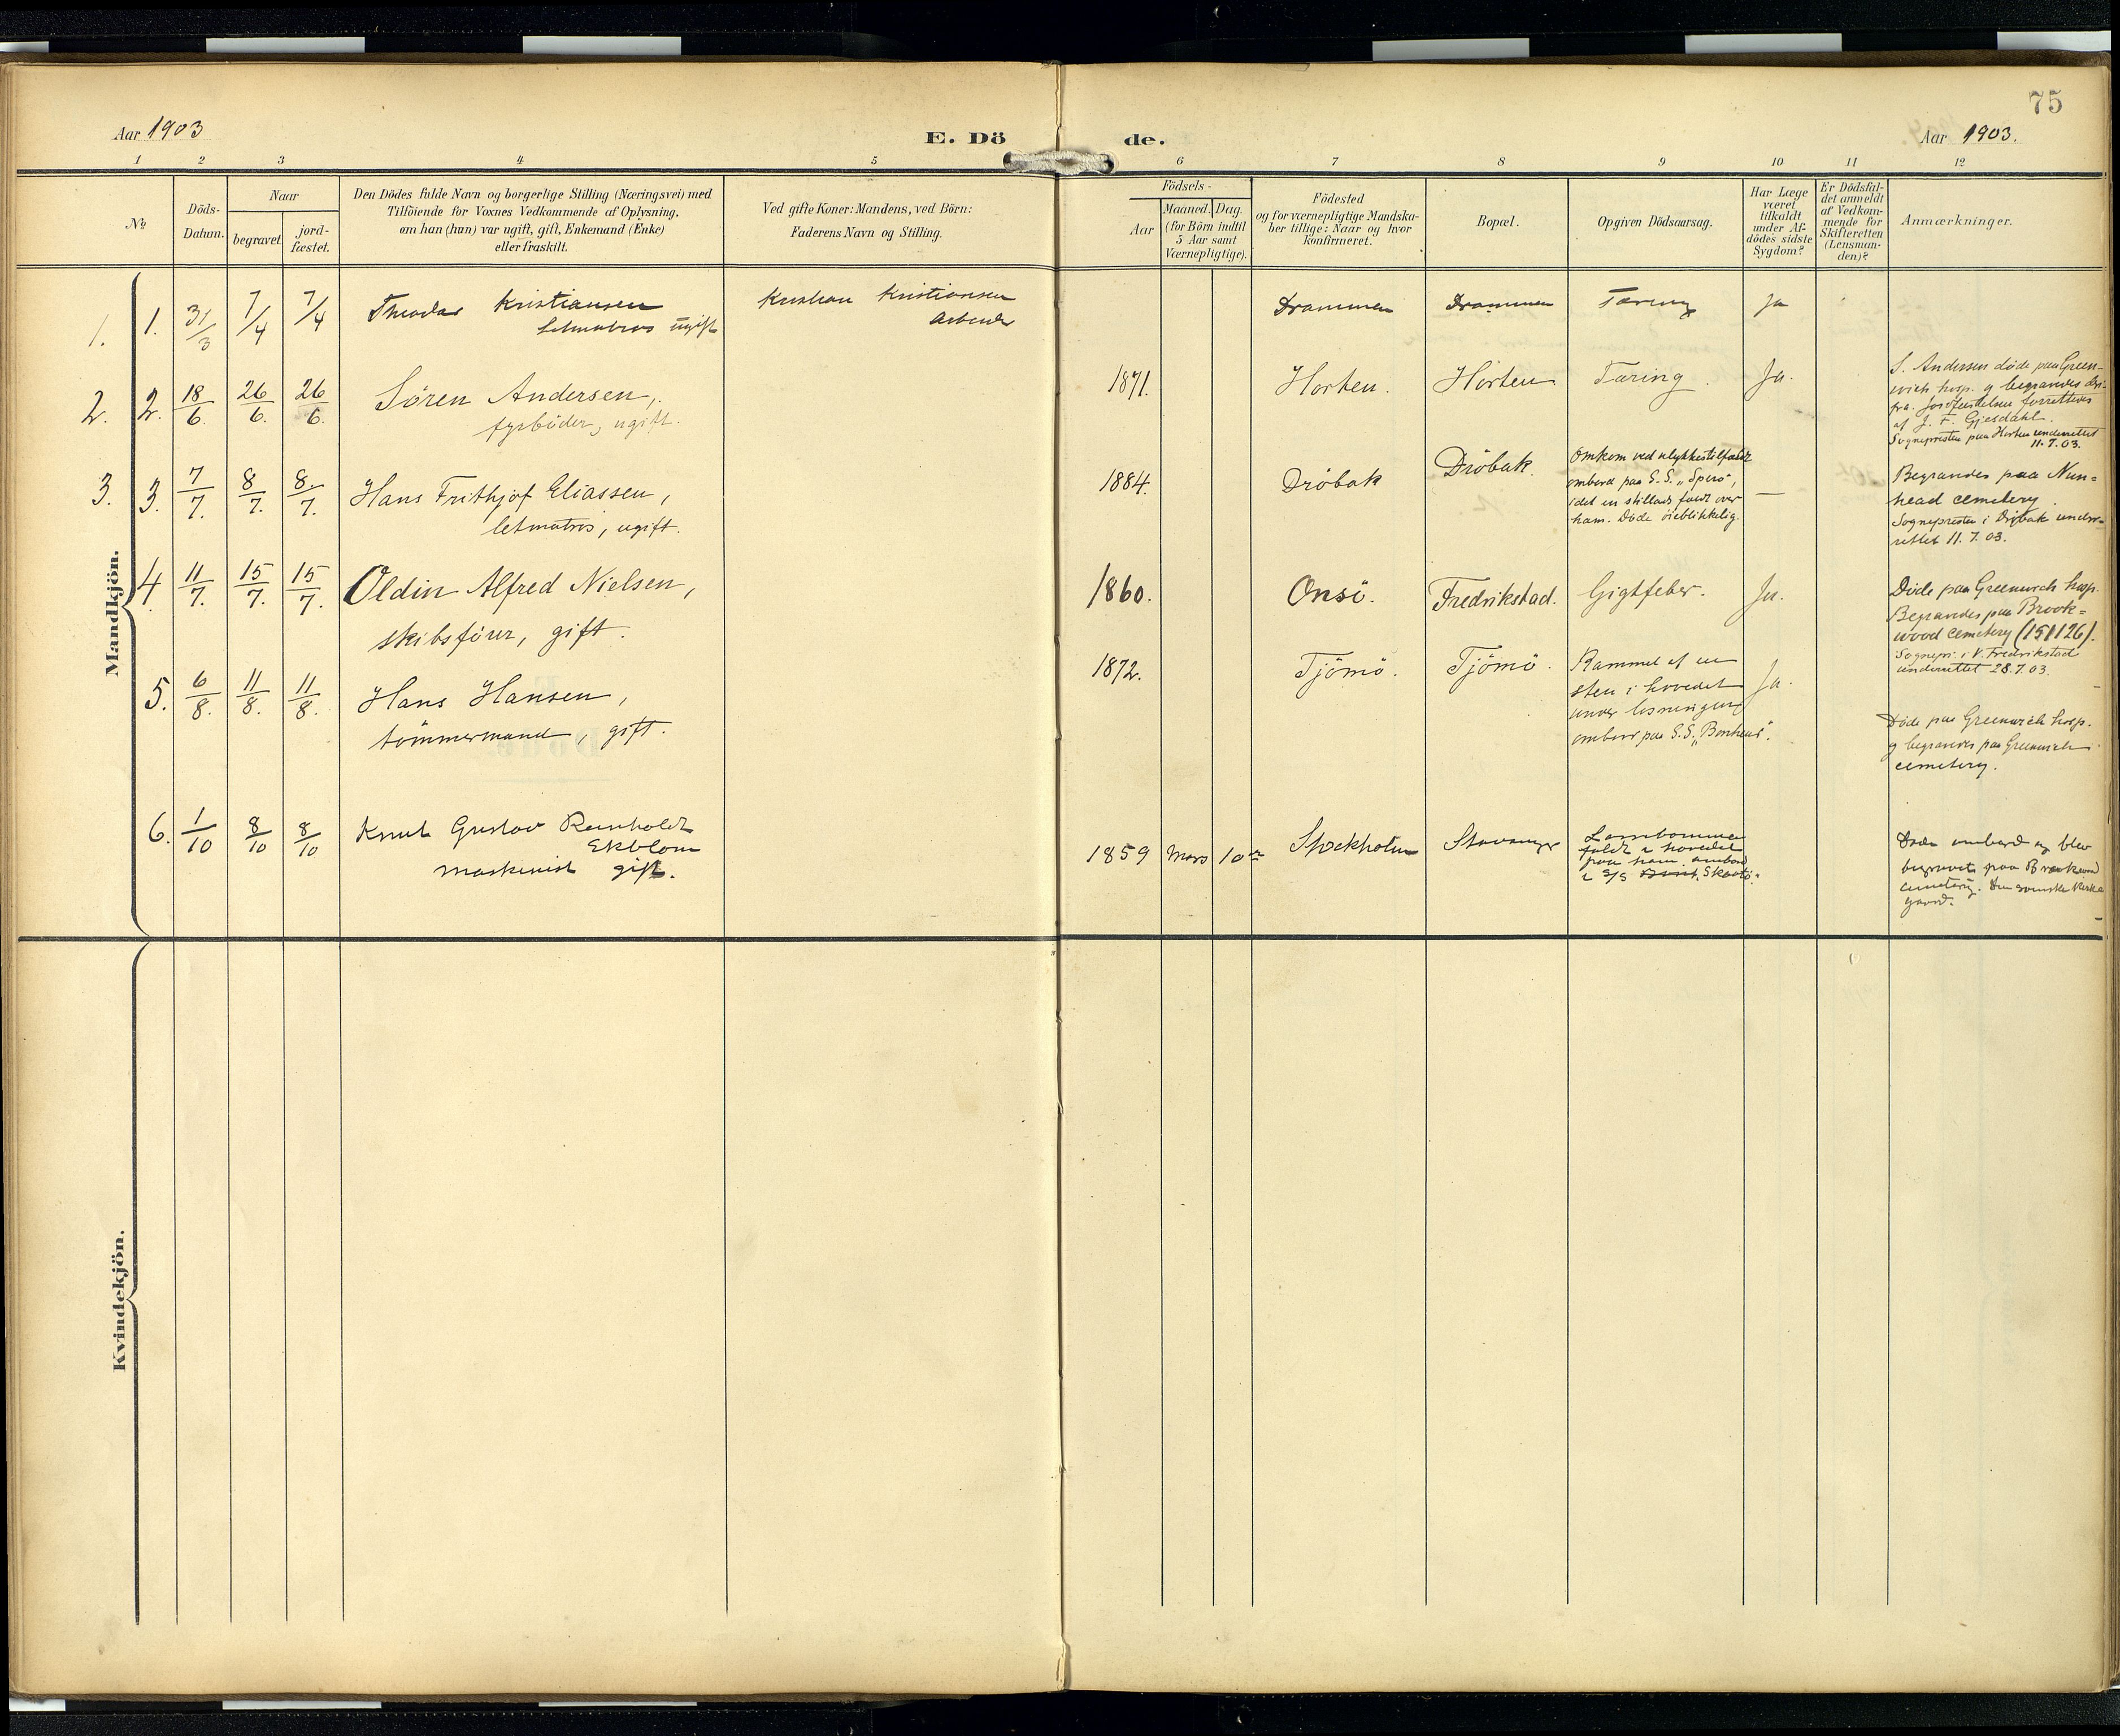 75
Aar 1903
E. Dö de.
Aar 1903.
1 2 3 4 5 6 7 8 9 10 11 12
No
Döds-
Datum.
Naar
begravet.
jord-
fæstet.
Den Dödes fulde Navn og borgerlige Stilling (Næringsvei) med
Tilföiende for Voxnes Vedkommende af Oplysning,
om han (hun) var ugift, gift, Enkemand (Enke)
eller fraskilt.
Ved gifte Koner: Mandens, ved Börn:
Faderens Navn og Stilling.
Födsels-
Aar
Maaned. Dag.
(for Börn indtil
5 Aar samt
Værnepligtige).
Födested
og for værnepligtige Mandska-
ber tillige: Naar og hvor
konfirmeret.
Bopæl.
Opgiven Dödsaarsag.
Har Læge
været
tilkaldt
under Af-
dödes sidste
Sygdom?
Er Dödsfal-
det anmeldt
af Vedkom-
mende for
Skifteretten
(Lensman-
den)?
Anmærkninger.
Mandkjön.
1. 1. 31/3 7/4 7/4
Theodor Kristiansen
Letmatros ugift
Kristian Kristiansen
Arbeider
Drammen
Drammen
Tæring
Ja
2. 2. 18/6. 26/6. 26/6.
Sören Andersen,
fyrböder, ugift.
1871.
Horten.
Horten
Tæring.
Ja.
S. Andersen döde paa Green-
wich hosp. og begravedes der-
fra. Jordfæstelsen forrettedes
af J. F. Gjesdahl.
Sognepresten paa Horten underrettet
11.7.03.
3. 3. 7/7. 8/7. 8./7.
Hans Frithjof Eliassen,
letmatros, ugift.
1884.
Dröbak
Dröbak.
Omkom ved ulykkestilfælde
ombord paa S.S. „Sperö",
idet en stillads faldt over
ham. Döde öieblikkelig.
—
Begravedes paa Nun-
head cemetery.
Sognepresten i Dröbak under-
rettet 11.7.03.
4. 11/7. 15/7. 15/7.
Oldin Alfred Nielsen,
skibsförer, gift.
1860.
Onsö.
Fredrikstad.
Gigtfeber.
Ja.
Döde paa Greenwich hosp.
Begravedes paa Brook-
wood cemetery (151126).
Sognepr. i V. Fredrikstad
underrettet 28.7.03.
5. 6/8. 11/8. 11/8.
Hans Hansen,
tömmermand, gift.
1872.
Tjömö.
Tjömö.
Rammet af en
sten i hovedet
under losningen
ombord paa S.S.
Ja.
Döde paa Greenwich hosp.
og begravedes paa Greenwich
cemetery.
6. 1/10 8/10 8/10
Knut Gustav Reinholdt
Ekblom
maskinist gift.
1859 Mars 10de
Stockholm
Stavanger
Lossebommen
faldt i hovedet
paa ham ombord
i S/S Skaatö.
Döde ombord og blev
begravet paa Brookwood
cemetery. Den svenske Kirke
gaard.
Kvindekjön.